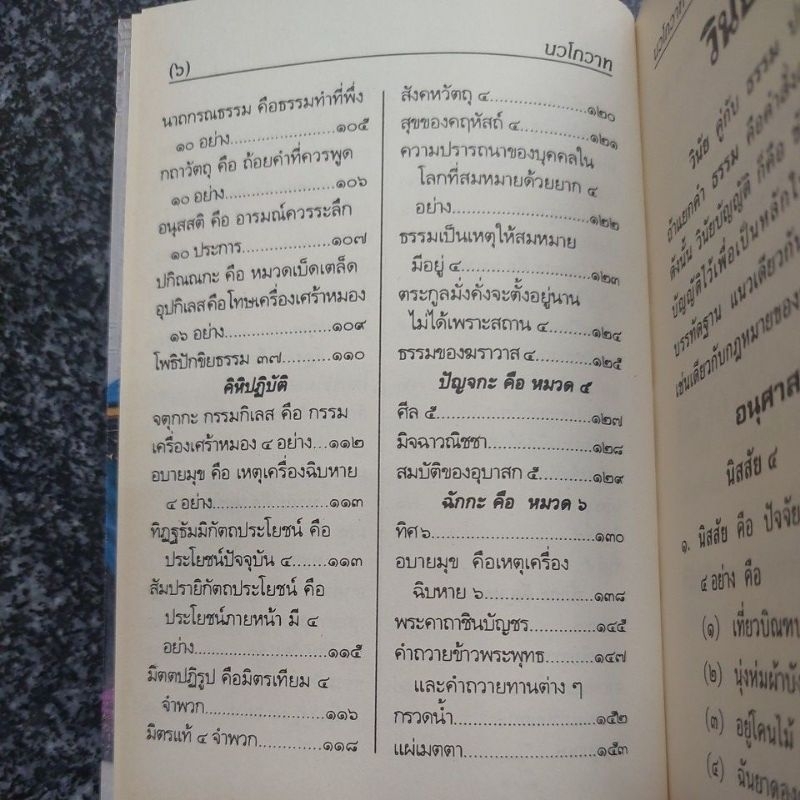 (๖)
นวโกวาท
นาถกรณธรรม คือธรรมทำที่พึ่ง
๑๐ อย่าง....................๑๐๕
กถาวัตถุ คือ ถ้อยคำที่ควรพูด
๑๐ อย่าง....................๑๐๖
อนุสสติ คือ อารมณ์ควรระลึก
๑๐ ประการ....................๑๐๗
ปกิณณกะ คือ หมวดเบ็ดเตล็ด
อุปกิเลสคือโทษเครื่องเศร้าหมอง
๑๖ อย่าง....................๑๐๙
โพธิปักขิยธรรม ๓๗.......๑๑๐
คิหิปฏิบัติ
จตุกกะ กรรมกิเลส คือ กรรม
เครื่องเศร้าหมอง ๔ อย่าง...๑๑๒
อบายมุข คือ เหตุเครื่องฉิบหาย
๔ อย่าง....................๑๑๓
ทิฏฐธัมมิกัตถประโยชน์ คือ
ประโยชน์ปัจจุบัน ๔........๑๑๓
สัมปรายิกัตถประโยชน์ คือ
ประโยชน์ภายหน้า มี ๔
อย่าง....................๑๑๕
มิตตปฏิรูป คือมิตรเทียม ๔
จำพวก....................๑๑๖
มิตรแท้ ๔ จำพวก..........๑๑๘
สังคหวัตถุ ๔..............๑๒๐
สุขของคฤหัสถ์ ๔..........๑๒๑
ความปรารถนาของบุคคลใน
โลกที่สมหมายด้วยยาก ๔
อย่าง....................๑๒๒
ธรรมเป็นเหตุให้สมหมาย
มีอยู่ ๔....................๑๒๓
ตระกูลมั่งคั่งจะตั้งอยู่นาน
ไม่ได้เพราะสถาน ๔.......๑๒๔
ธรรมของฆราวาส ๔........๑๒๕
ปัญจกะ คือ หมวด ๕
ศีล ๕....................๑๒๗
มิจฉาวณิชชา..............๑๒๘
สมบัติของอุบาสก ๕.......๑๒๙
ฉักกะ คือ หมวด ๖
ทิศ๖....................๑๓๐
อบายมุข คือเหตุเครื่อง
ฉิบหาย ๖................๑๓๘
พระคาถาชินบัญชร.........๑๔๕
คำถวายข้าวพระพุทธ.......๑๔๗
และคำถวายทานต่าง ๆ
กรวดน้ำ..................๑๕๒
แผ่เมตตา.................๑๕๓
นวโกวาท
วินัย คู่กับ ธรรม
อ้านยกคำ ธรรม คือคำสั่ง
ดังนั้น วินัยบัญญัติ ก็คือ
บัญญัติไว้เพื่อเป็นหลักใ
บรรทัดฐาน แนวเดียวกับ
เช่นเดียวกับกฎหมายของ
อนุศาส
นิสสัย ๔
๑. นิสสัย คือ ปัจจัย
๔ อย่าง คือ
(๑) เที่ยวบิณฑบ
(๒) นุ่งห่มผ้าบัง
(๓) อยู่โคนไม้
(๔) ฉันยาดอง